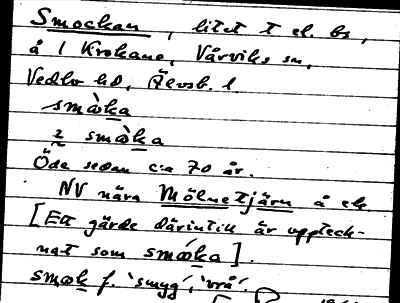 Smockan, litet t el. bs,
å 1 Krokane, Vårviks sn,
Vedbo hd, Älvsb. l.
smòka
2 smòka
Öde sedan c:a 70 år.
NV nära Mölnetjärn å ek.
[Ett gärde därintill är uppteck-
nat som smóka].
smok f. 'smyg', 'vrå'.